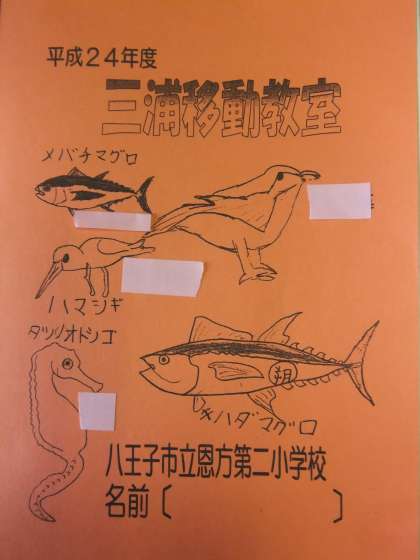 平成24年度
三浦移動教室
メバチマグロ
ハマシギ
タツノオトシゴ
朔
キハダマグロ
八王子市立恩方第二小学校
名前〔 〕